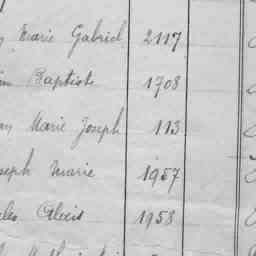 Marie Gabriel 2117
Baptiste 1708
Marie Joseph 113
seph Marie 1957
les Alexis 1958